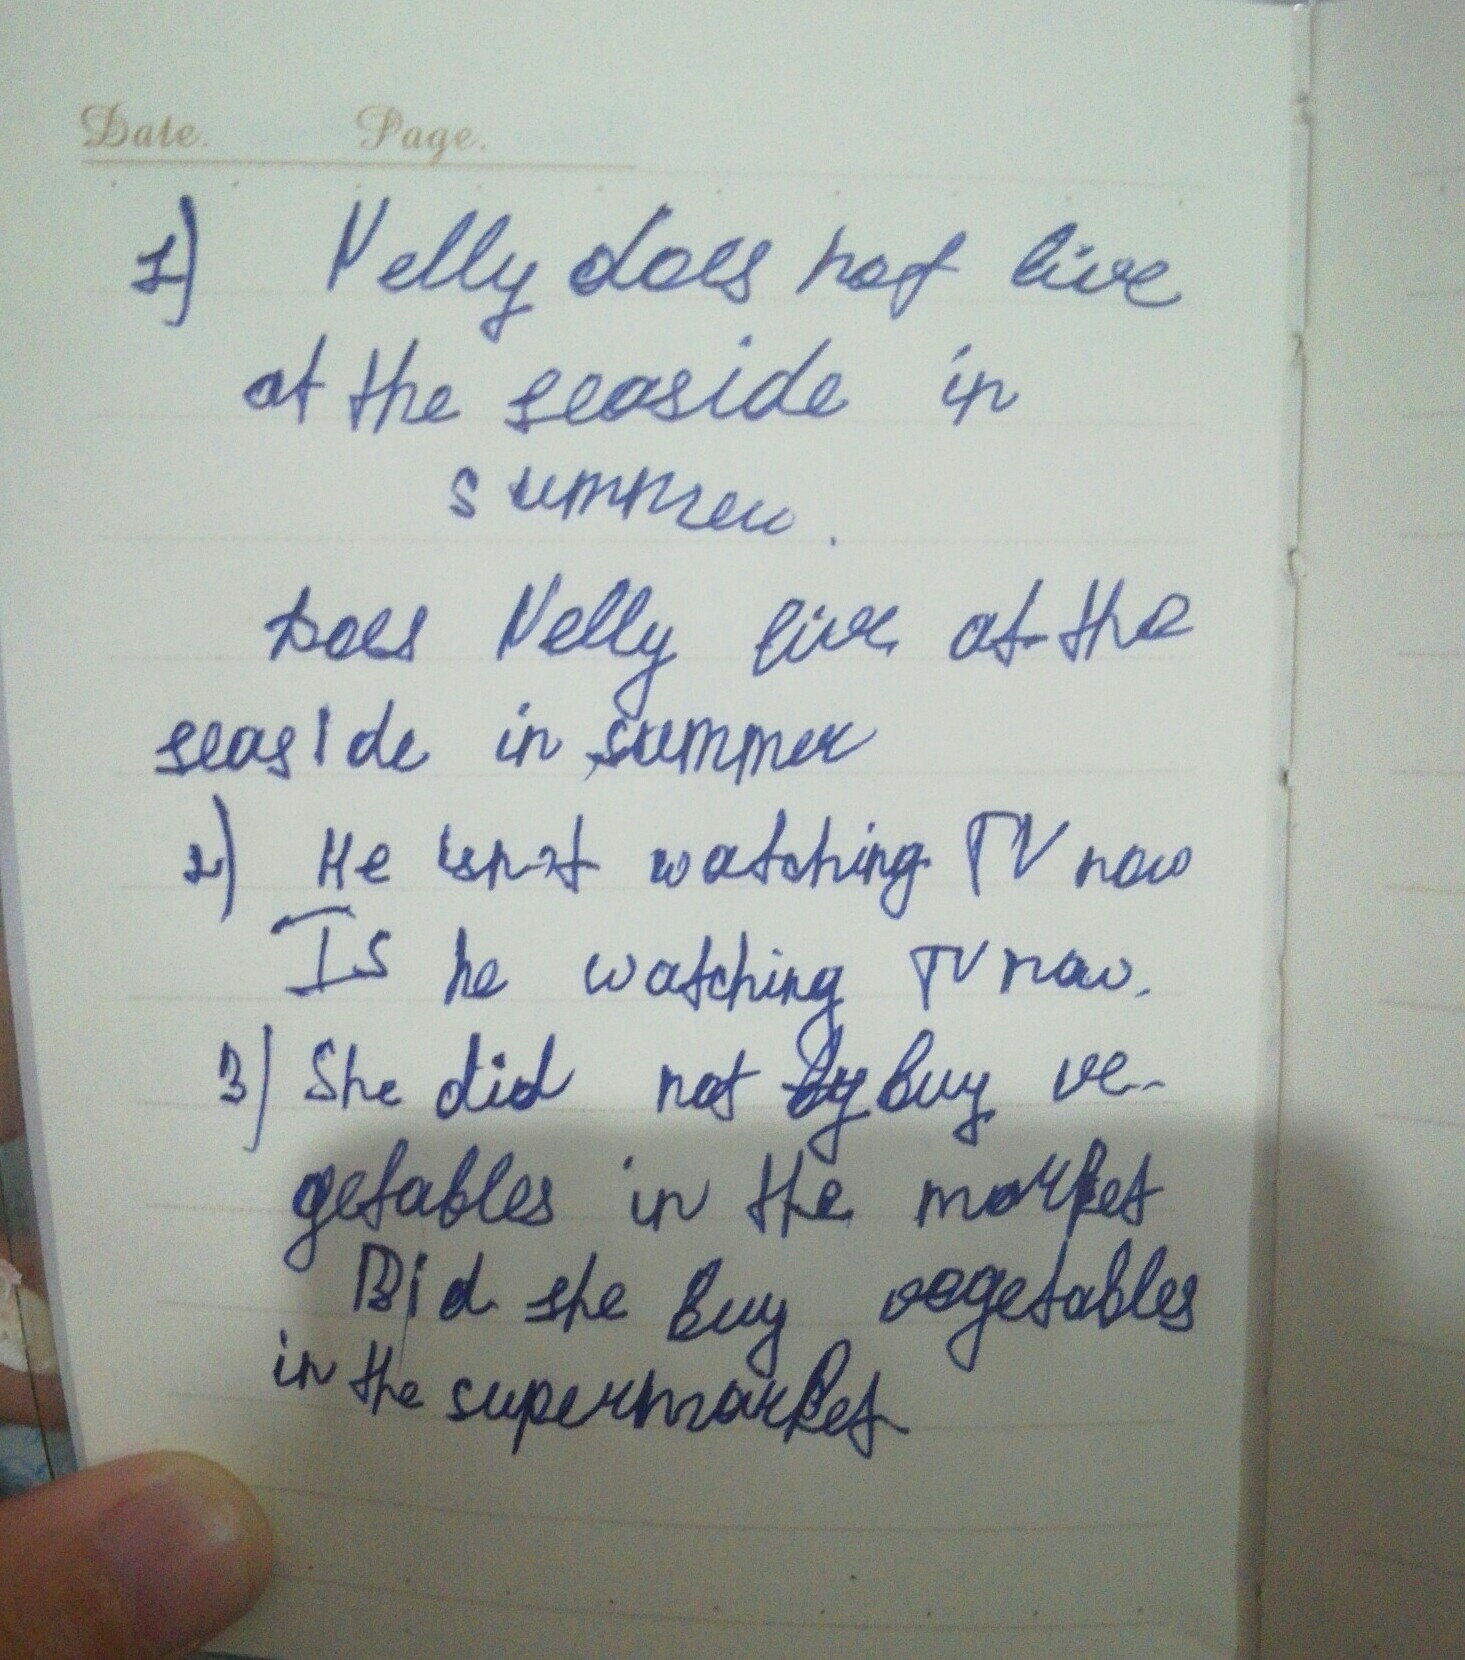 Date. Page.
1) Nelly does not live
at the seaside in
summer.
Does Nelly live at the
seaside in summer
2) He isnot watching TV now
Is he watching TV now.
3) She did not by buy ve-
getables in the market
Did she buy vegetables
in the supermarket